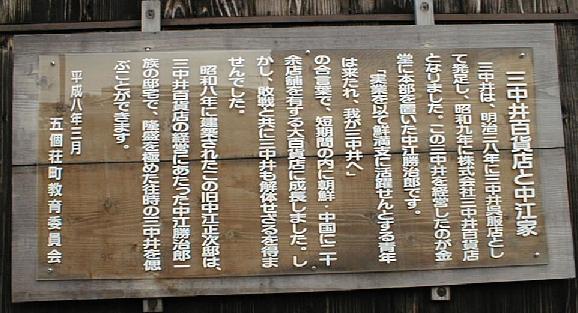 三中井百貨店と中江家
三中井は、明治三八年に三中井呉服店とし
て発足し、昭和九年に株式会社三中井百貨店
となりました。この三中井を経営したのが金
堂に本部を置いた中江勝治郎です。
「実業を以て鮮満支に活躍せんとする青年
は来たれ、我が三中井へ」
の合言葉で、短期間の内に朝鮮、中国に二十
余店舗を有する大百貨店に成長しました。し
かし、敗戦と共に三中井も解体せざるを得ま
せんでした。
昭和八年に建築されたこの旧中江正次邸は、
三中井百貨店の経営にあたった中江勝治郎一
族の邸宅で、隆盛を極めた往時の三中井を偲
ぶことができます。
平成八年三月
五個荘町教育委員会